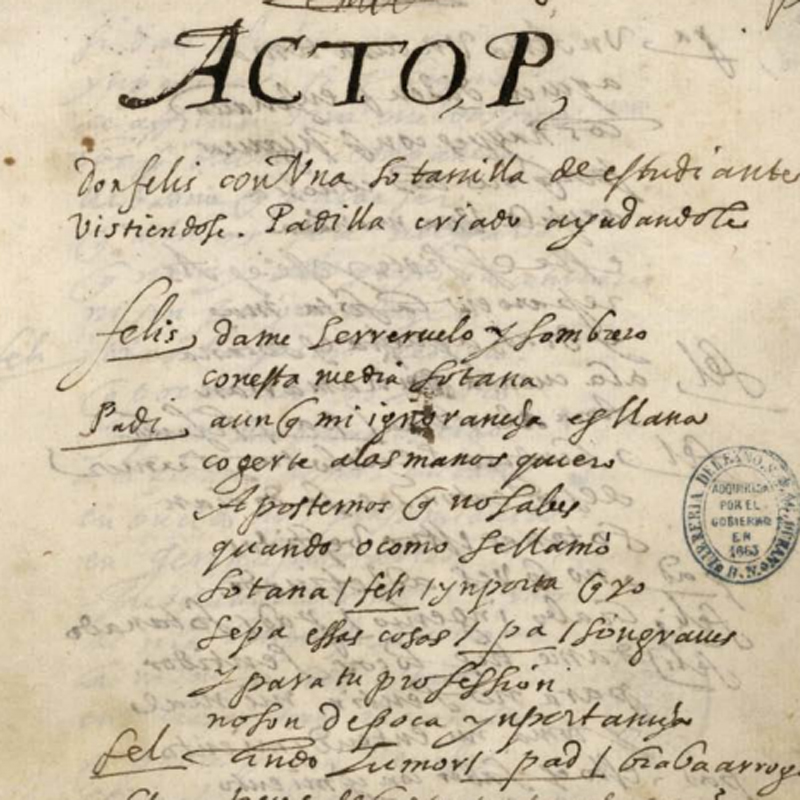 ACTO, P,
Don felis con Vna sotanilla de estudiante
Vistiendose. Padilla criado ayudandole
felis dame ferreruelo y sombrero
con esta media sotana
Padi aunq mi ignorancia es llana
cogerte a las manos quiero
Apostemos q no sabes
quando o como se llamó
sotana / feli / ynporta q yo
sepa essas cosas / pa / son graves
y para tu professión
no son de poca ynportancia
fel lindo humor / pad / braba arrog
LIBRERIA DEL EXMO. S. D. A. DURAN. B. N.
ADQUIRIDA
POR EL
GOBIERNO
EN
1863